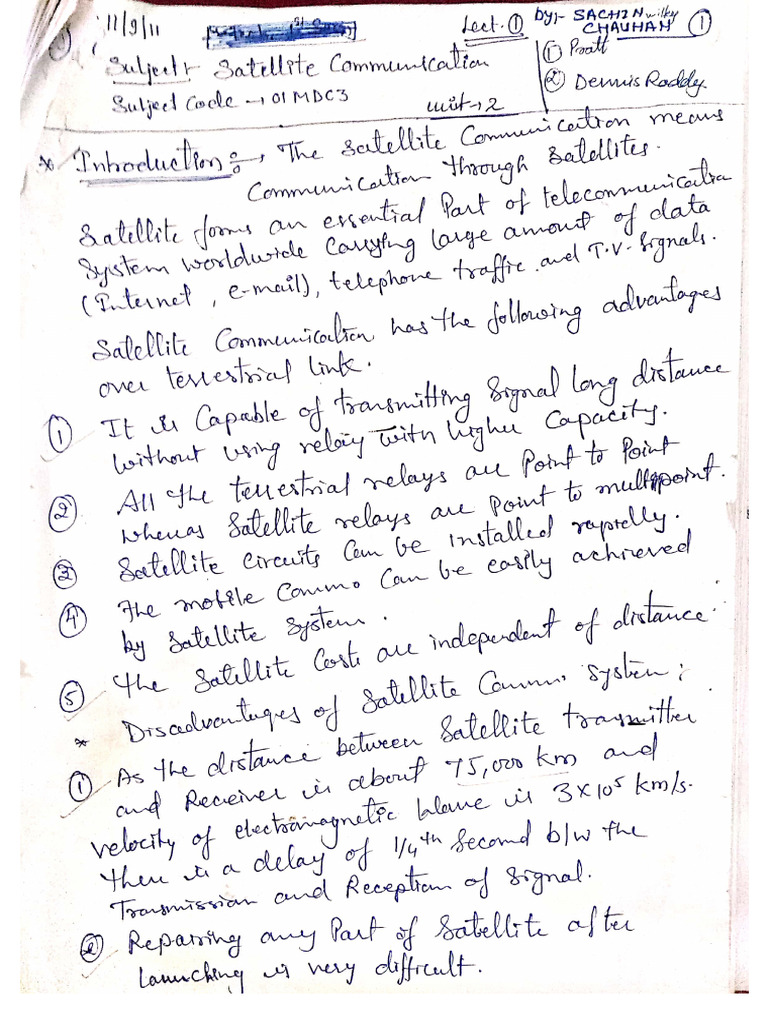 11/9/11
Lect. ①
by:- SACHIN wilky
CHAUHAN ①
Subject:- Satellite Communication
① Pratt
Subject Code → 01 MDC3
② Dennis Roddy
unit → 2
* Introduction:-, The Satellite Communication means
Communication through Satellites.
Satellite forms an essential Part of telecommunication
System worldwide Carrying large amount of data
(Internet, e-mail), telephone traffic and T.V. Signals.
Satellite Communication has the following advantages
over terrestrial link.
① It is Capable of transmitting Signal long distance
without using relay with higher Capacity.
② All the terrestrial relays are Point to Point
whereas Satellite relays are Point to multipoint.
③ Satellite Circuits Can be installed rapidly.
④ The mobile Commo Can be easily achieved
by Satellite System.
⑤ The Satellite Costs are independent of distance.
* Disadvantages of Satellite Commo System:
① As the distance between Satellite transmitter
and Receiver is about 75,000 km and
velocity of electromagnetic Wave is 3×10⁵ km/s.
there is a delay of 1/4th Second b/w the
Transmission and Reception of Signal.
② Repairing any Part of Satellite after
Launching is very difficult.